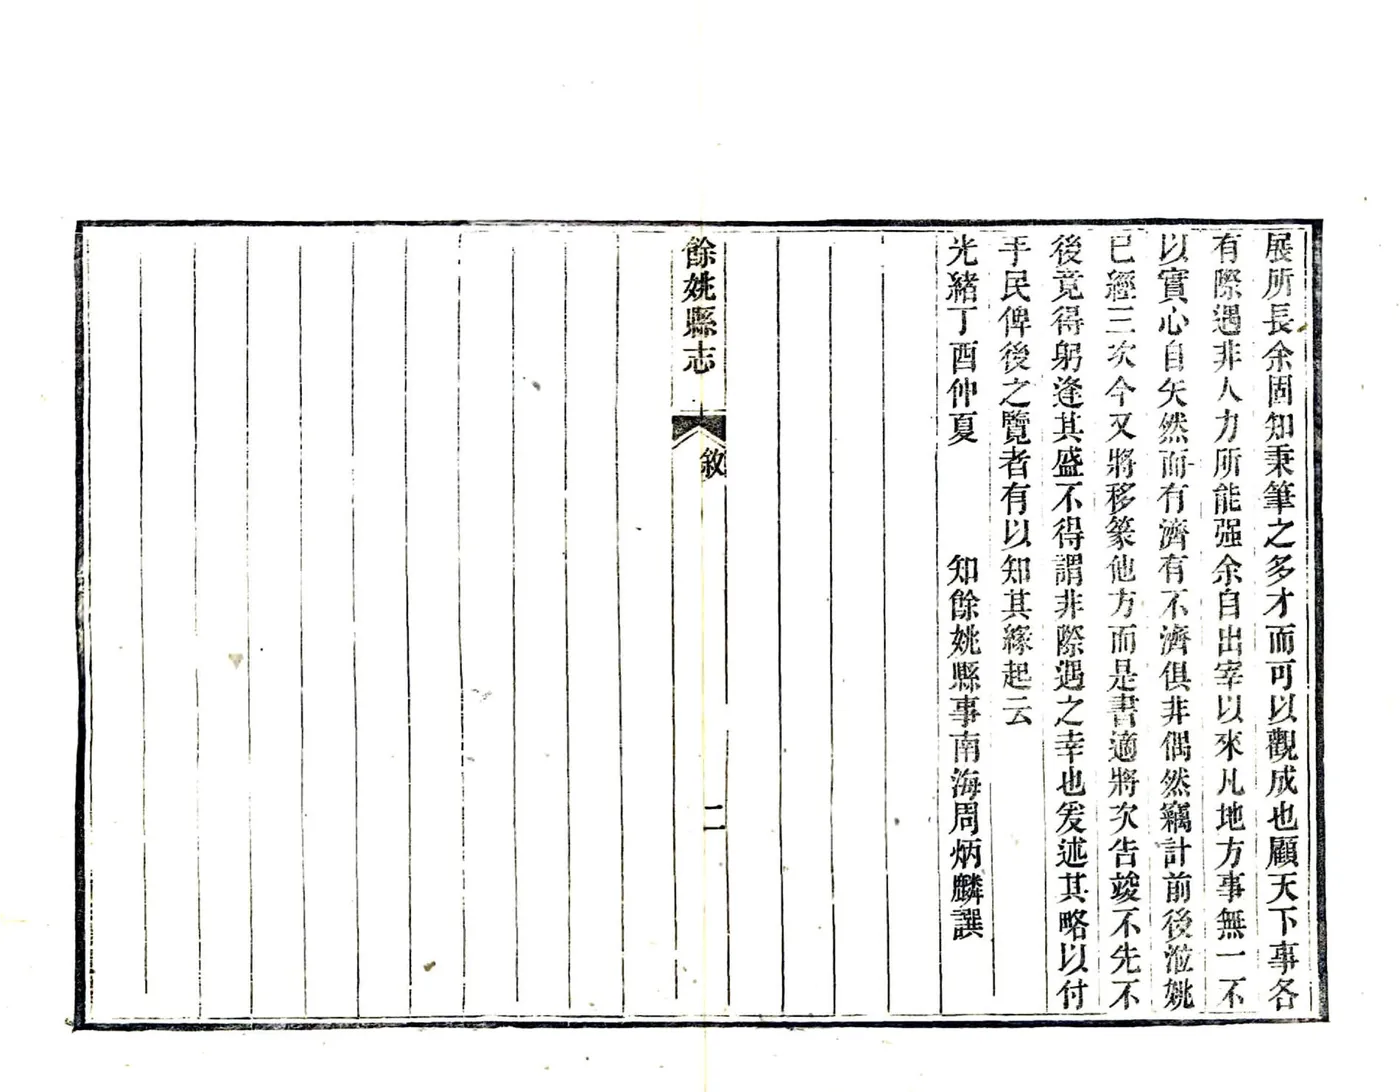 展所長余固知秉筆之多才而可以觀成也顧天下事各
有際遇非人力所能强余自出宰以來凡地方事無一不
以實心自矢然而有濟有不濟俱非偶然竊計前後涖姚
已經三次今又將移篆他方而是書適將次告竣不先不
後竟得躬逢其盛不得謂非際遇之幸也爰述其略以付
手民俾後之覽者有以知其緣起云
光緒丁酉仲夏　　知餘姚縣事南海周炳麟譔
餘姚縣志　敘　二